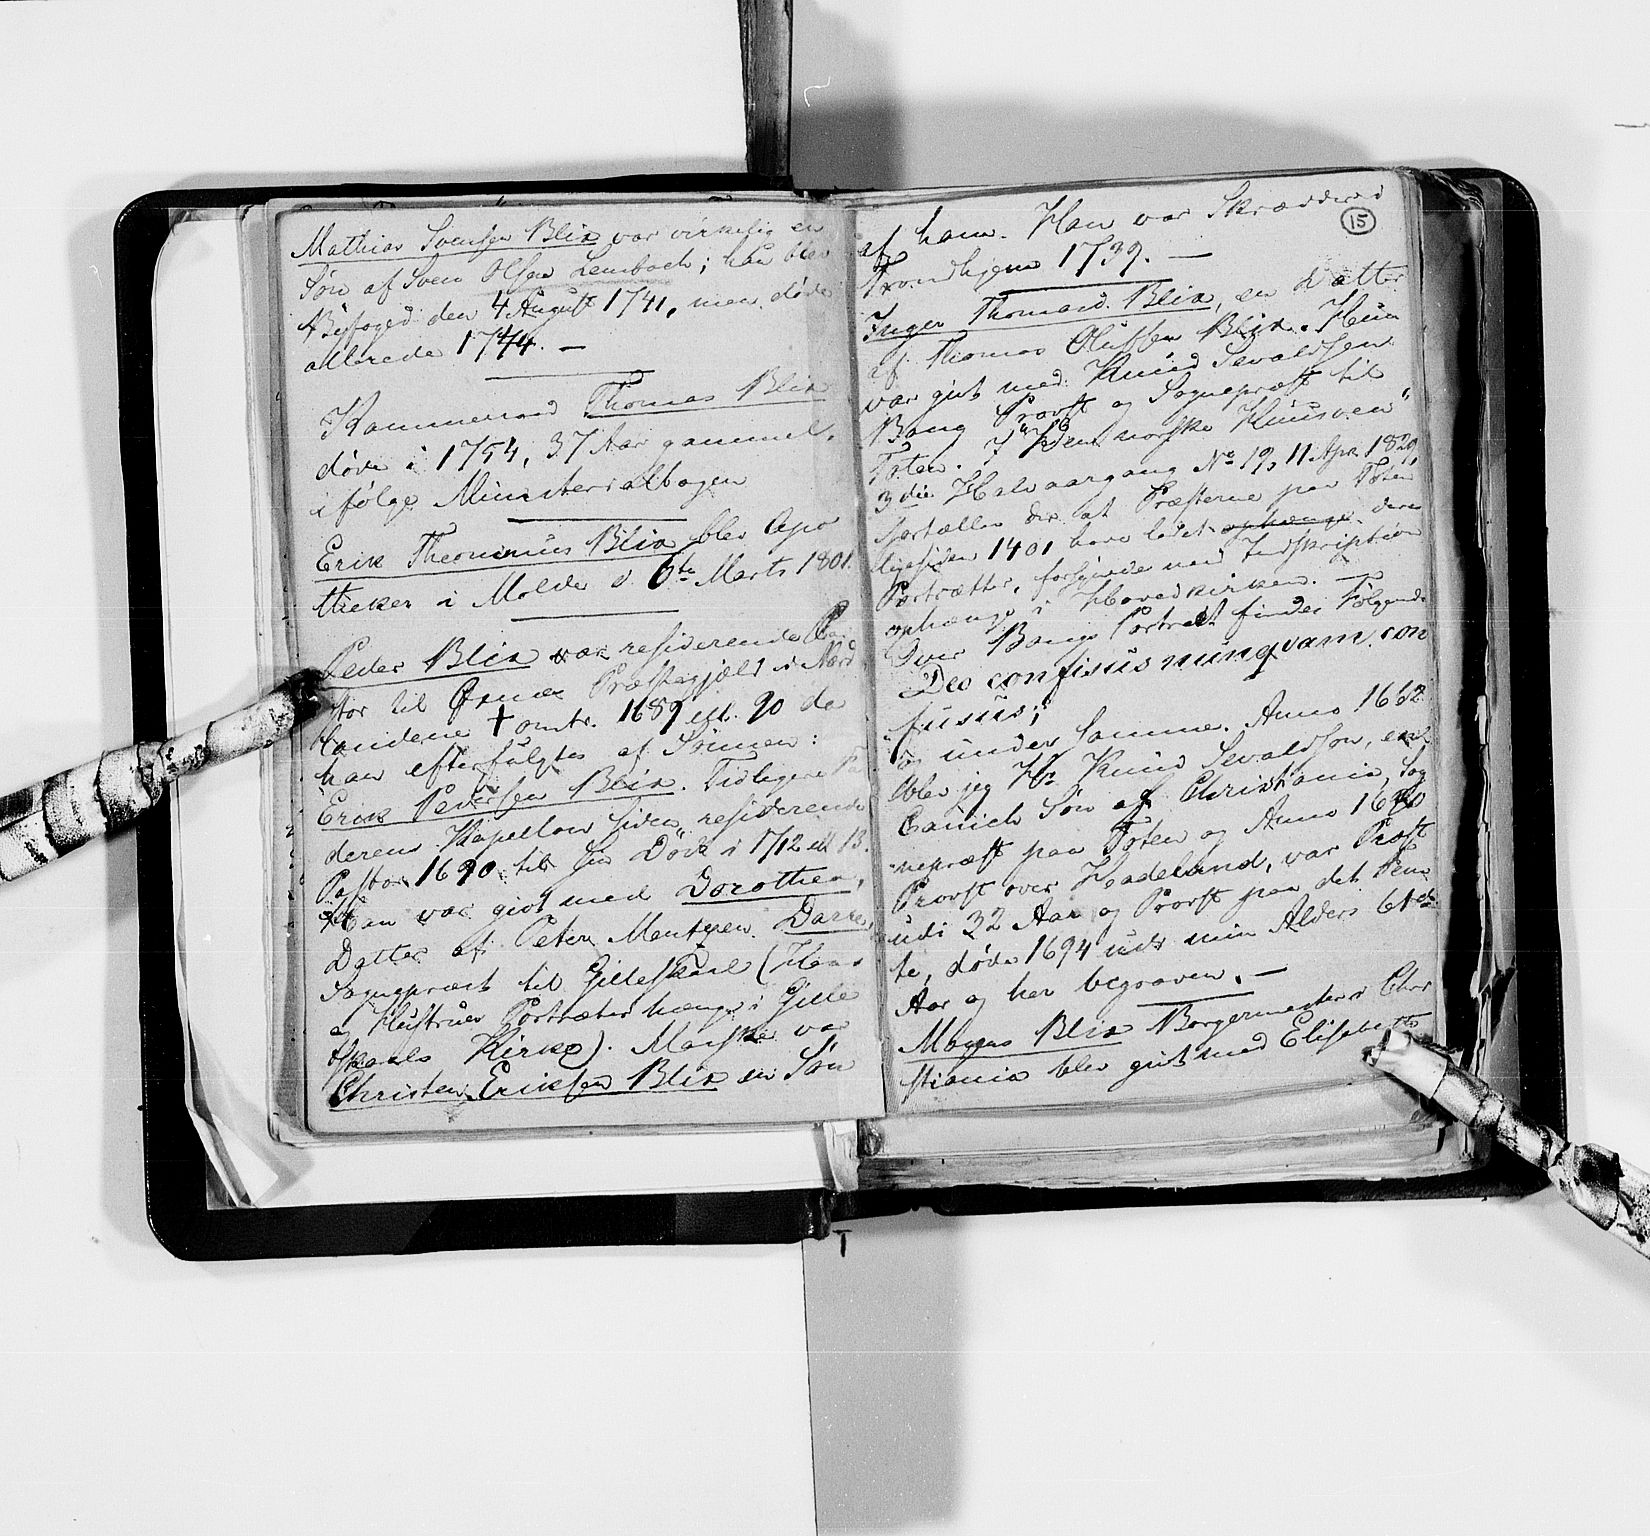 Mathias Svensen Blix var virkelig en
Søn af Sven Olsen Lembach; han blev
Byfoged den 4 August 1741, men døde
allerede 1744. —
Kammerraad Thomas Blix
døde i 1754, 37 Aar gammel,
ifølge Ministerialbogen
Erik Theonimus Blix blev Apo
theker i Molde d 6te Marts 1801.
Peder Blix var residerende Pa
stor til Præstegjæld i Nord
landene † omtr. 1689 ell. 90 da
han efterfulgtes af Sønnen:
Erik Pedersen Blix. Tidligere Fa
derens Kapellan siden residerende
Pastor 1690 til sin Død i 1712 ell 13.
Han var givt med Dorothea,
Datter af Peter Mentzen Darre,
Sognepræst til Gilleskaal (Hans
og Hustrues Portræter hænge i Gille
skaals Kirke). Maaske var
Christen Eriksen Blix en Søn
15
af ham. Han var Skrædder i
Trondhjem 1739. —
Inger Thomasd. Blix, en Datter
af Thomas Olufsen Blix. Hun
var givt med Knud Sevaldsen
Bang Provst og Sognepræst til
Toten. I "den norske Huusven",
3die Halvaargang No 19, 11 Apr. 1829,
fortælles der at Præsterne paa Toten
ligesiden 1401 have ladet ophænge deres
Portrætter, forsynede med Indskription
ophænge i Hovedkirken. —
Over Bangs Portræt findes Følgende
Deo confisus nunqvam con
fusus;
og under samme. Anno 1662
blev jeg Hr Knud Sevaldsøn, en
Canich Søn af Christiania, Sog
nepræst paa Toten og Anno 1690
Provst over Hadeland, var Præst
udi 32 Aar og Provst paa det
te, døde 1694 udi min Alders 61de
Aar og her begraven. —
Mogens Blix Borgermester i Chri
stiania blev givt med Elisabeth